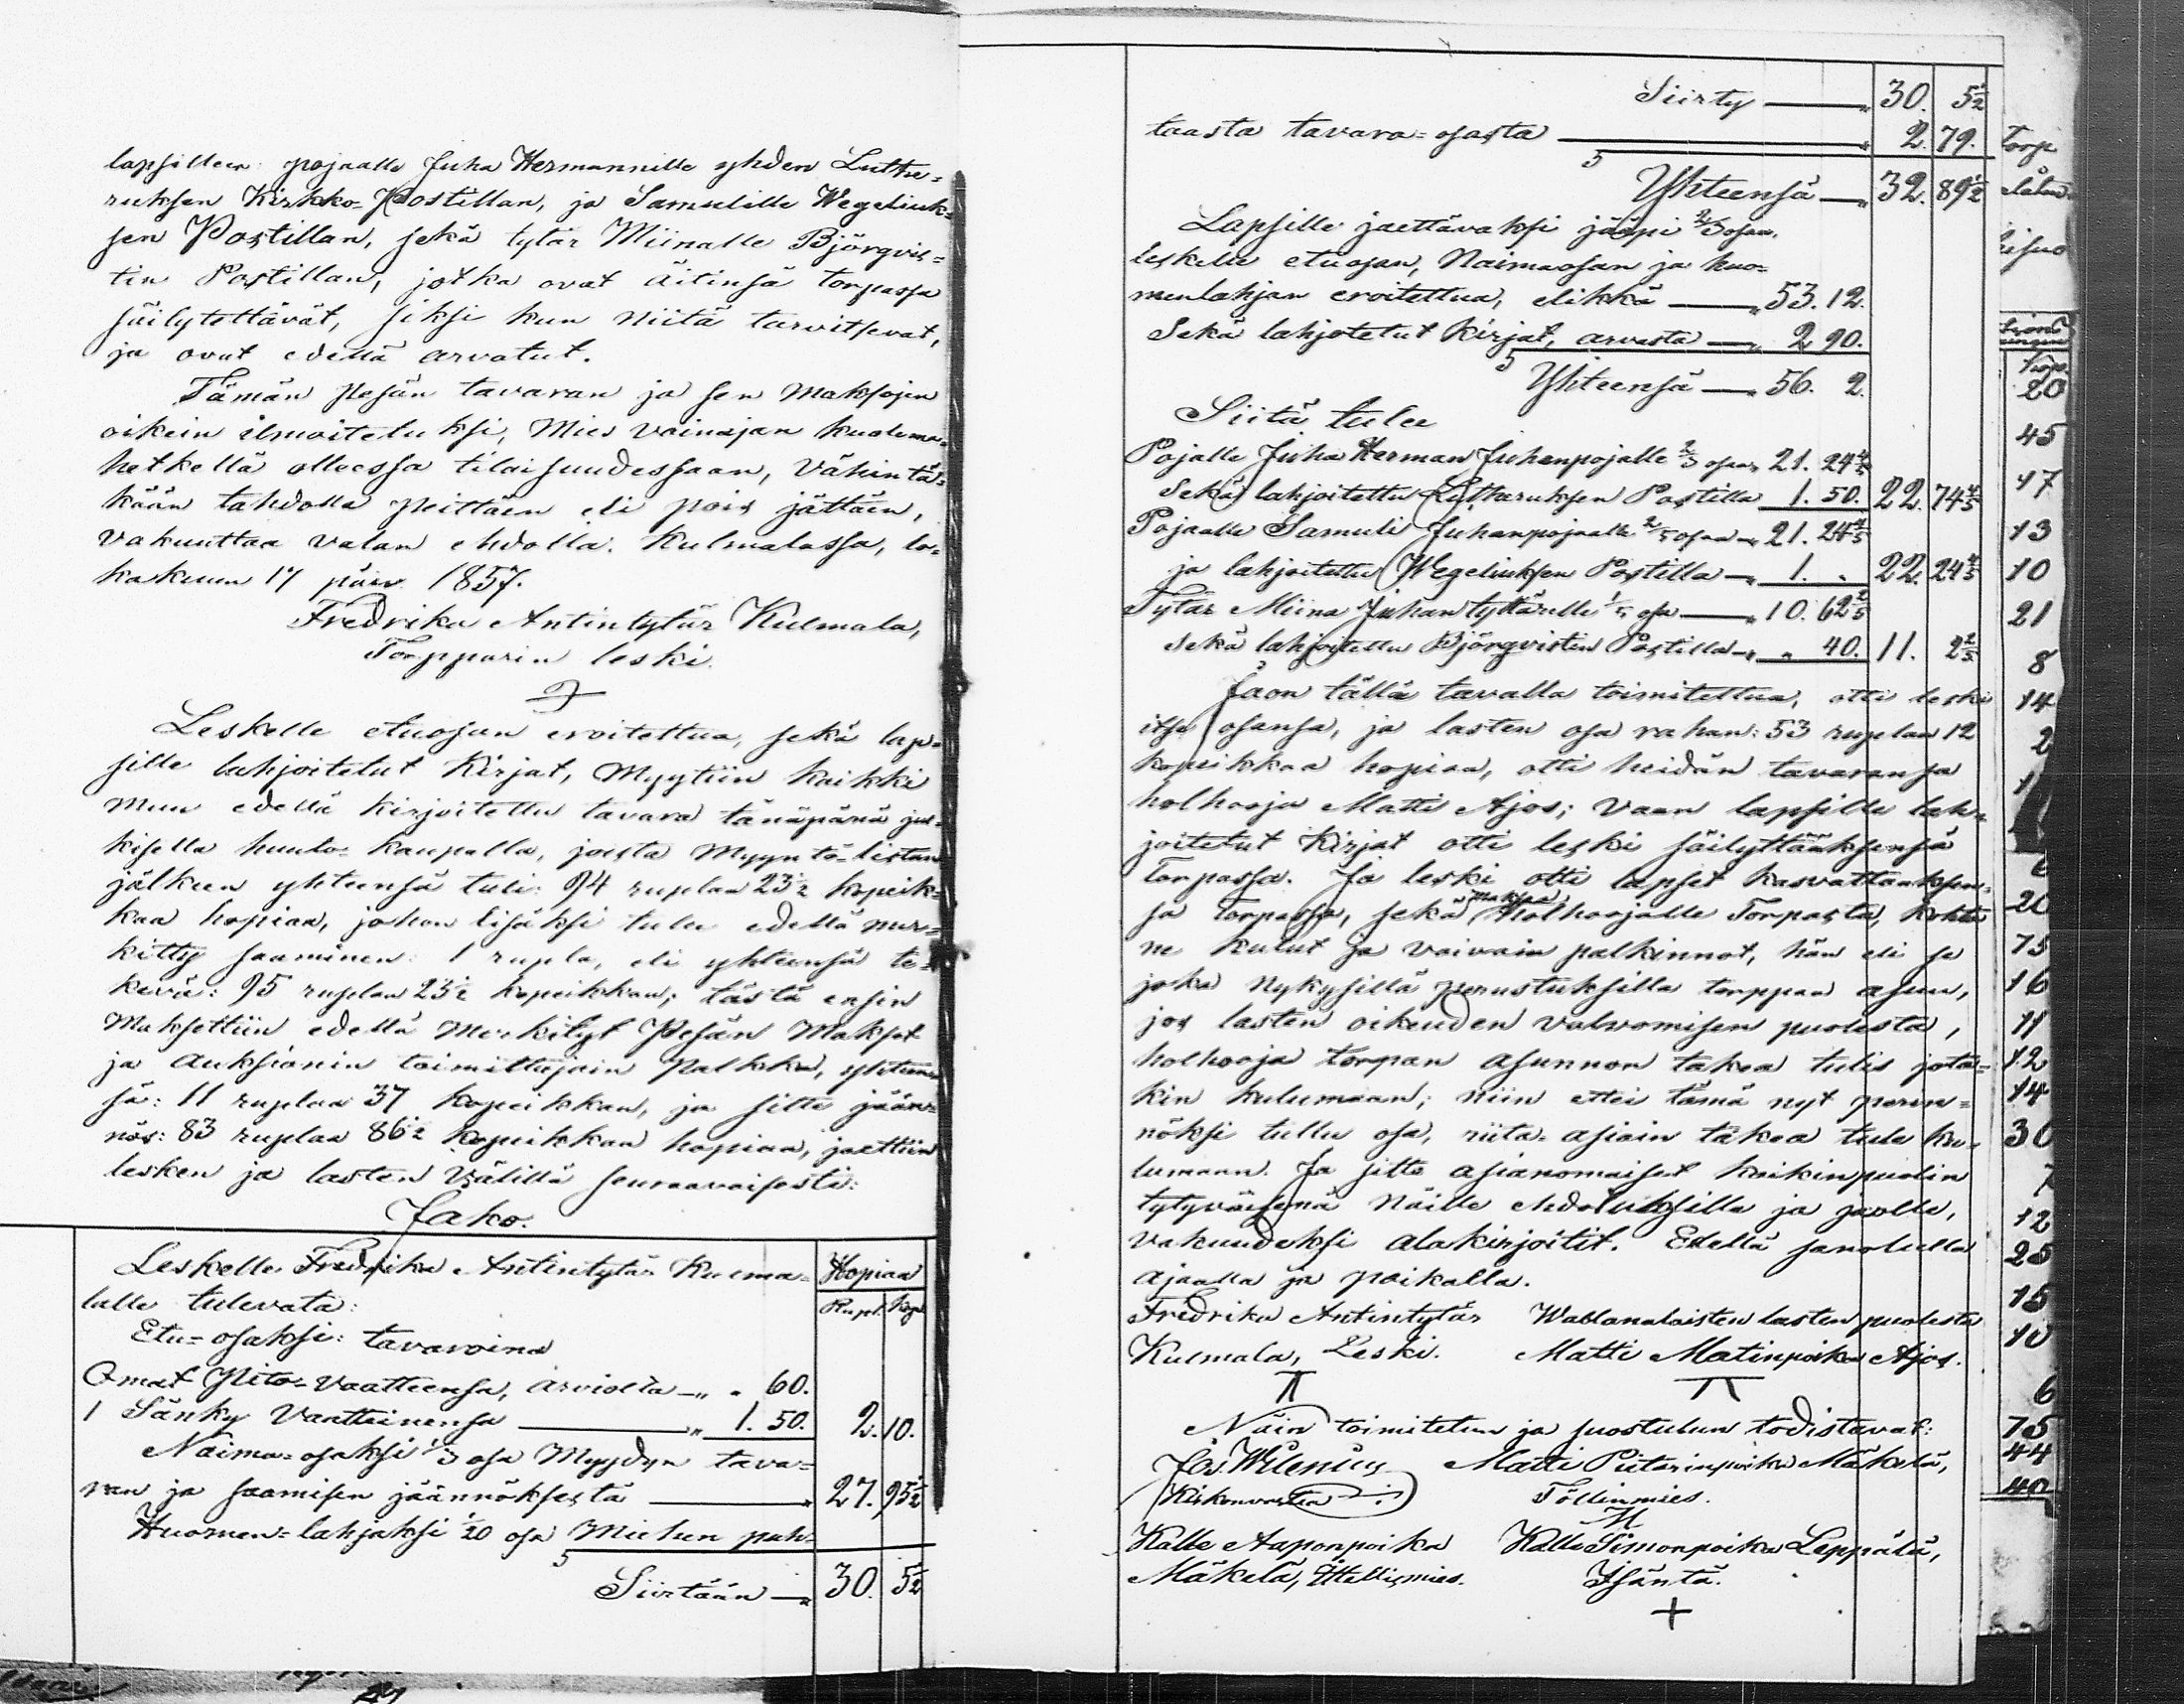 lapsillen: pojaalle Juha Hermannille yhden Luthe=
ruksen Kirkko-Postillan, ja Samulille Wegeliuk=
sen Postillan, sekä tytär Miinalle Björqvis=
tin Postillan, jotka ovat äitinsä torpassa
säilytettävät, siksi kun niitä tarvitsevat,
ja ovat edellä arvatut.
Tämän pesän tavaran ja sen maksojen
oikein ilmoitetuksi, Mies vainajan kuolema=
hetkellä olleessa tilaisuudessaan, vähintä=
kään tahdolla peittäen eli pois jättäen,
vakuuttaa valan ehdolla. Kulmalassa, lo=
kakuun 17 päiv. 1857.
Fredrika Antintytär Kulmala,
Torpparin leski.
Leskelle etuosan eroitettua, sekä lap=
sille lahjoitetut Kirjat, Myytiin kaikki
muu edellä kirjoitettu tavara tänäpänä jul=
kisella huuto-kaupalla, josta Myyntö-listan
jälkeen yhteensä tuli: 94 ruplaa 23½ kopeik=
kaa hopiaa, johon lisäksi tulee edellä mer=
kitty saaminen: 1 rupla, eli yhteensä te=
kevä: 95 ruplaa 23½ kopeikkaa; tästä ensin
Maksettiin edellä Merkityt Pesän Maksot
ja Auksionin toimittajain Palkka, yhteen=
sä: 11 ruplaa 37 kopeikkaa, ja sitte jään=
nös: 83 ruplaa 86½ kopeikkaa hopiaa, jaettiin
lesken ja lasten välillä seuraavaisesti:
Jako.
Leskelle Fredrika Antintytär Kulma= Hopiaa
lalle tulevata: Rupl. Kop.
Etu=osaksi: tavaroina
Omat Pito=vaatteensa, arviolta — " " 60.
1 Sänky Vaatteinensa — " 1. 50. 2. 10.
Naima=osaksi ⅓ osa Myydyn tava=
ran ja saamisen jäännöksestä — " 27. 95½
Huomen=lahjaksi 1/20 osa Miehen puh=
Siirtään — " 30. 5½
Siirty — " 30. 5½
taasta tavara=osasta — " 2. 79.
Yhteensä — " 32. 89½
Lapsille jaettavaksi jääpi ⅔ osan,
leskelle etuosan, Naimaosan ja huo=
menlahjan eroitettua, elikkä — " 53. 12.
Sekä lahjotetut Kirjat, arvosta — " 2 90.
Yhteensä — " 56. 2.
Siitä tulee
Pojalle Juha Herman Juhanpojalle ⅖ osa " 21. 24⅘
Sekä lahjoitettu Lutheruksen Postilla 1. 50. 22. 74⅘
Pojaalle Samuli Juhanpojaalle ⅖ osaa — " 21. 24⅘
ja lahjoitettu Wegeliuksen Postilla — " 1. " 22. 24⅘
Tytär Miina Juhantyttärelle ⅕ osa — " 10. 62⅖
sekä lahjoitettu Björqvistin Postilla — " " 40. 11. 2⅖
Jaon tällä tavalla toimitettua, otti leski
itse osansa, ja lasten osa rahan: 53 ruplaa 12
kopeikkaa hopiaa, otti heidän tavaransa
holhooja Matti Ajos; vaan lapsille lah=
joitetut Kirjat otti leski säilyttääksensä
Torpassa. Ja leski otti lapset kasvattaaksen=
sa torpassa, sekä maksaa holhoojalle Torpasta, kohtu
ne kulut ja vaivain palkinnot, hän eli se
joka nykysillä perustuksilla torppaa asuu,
jos lasten oikeuden valvomisen puolesta,
holhooja torpan asunnon takea tulis jota=
kin kulumaan; niin ettei tämä nyt perin=
nöksi tullu osa, riita-asiain takea tule ku=
lumaan. Ja sitte asianomaiset kaikinpuolin
tytyväisenä näille ehdotuksille ja jaolle,
vakuudeksi alakirjoitit. Edellä sanotulla
ajaalla ja paikalla.
Fredrika Antintytär Wallanalaisten lasten puolesta
Kulmala, Leski. Matti Matinpoika Ajos.
Näin toimitetun ja suostutun todistavat:
Jos. Wilenius Matti Pietarinpoika Mäkelä,
Kirkonvartia Töllinmies.
Kalle Aaponpoika Kalle Simonpoika Leppälä,
Mäkelä, Itellismies. Isäntä.
+
torp
20
45
17
13
10
21
8
14
2
20
75
16
11
12
14
30
7
12
25
15
10
6
75
44
40